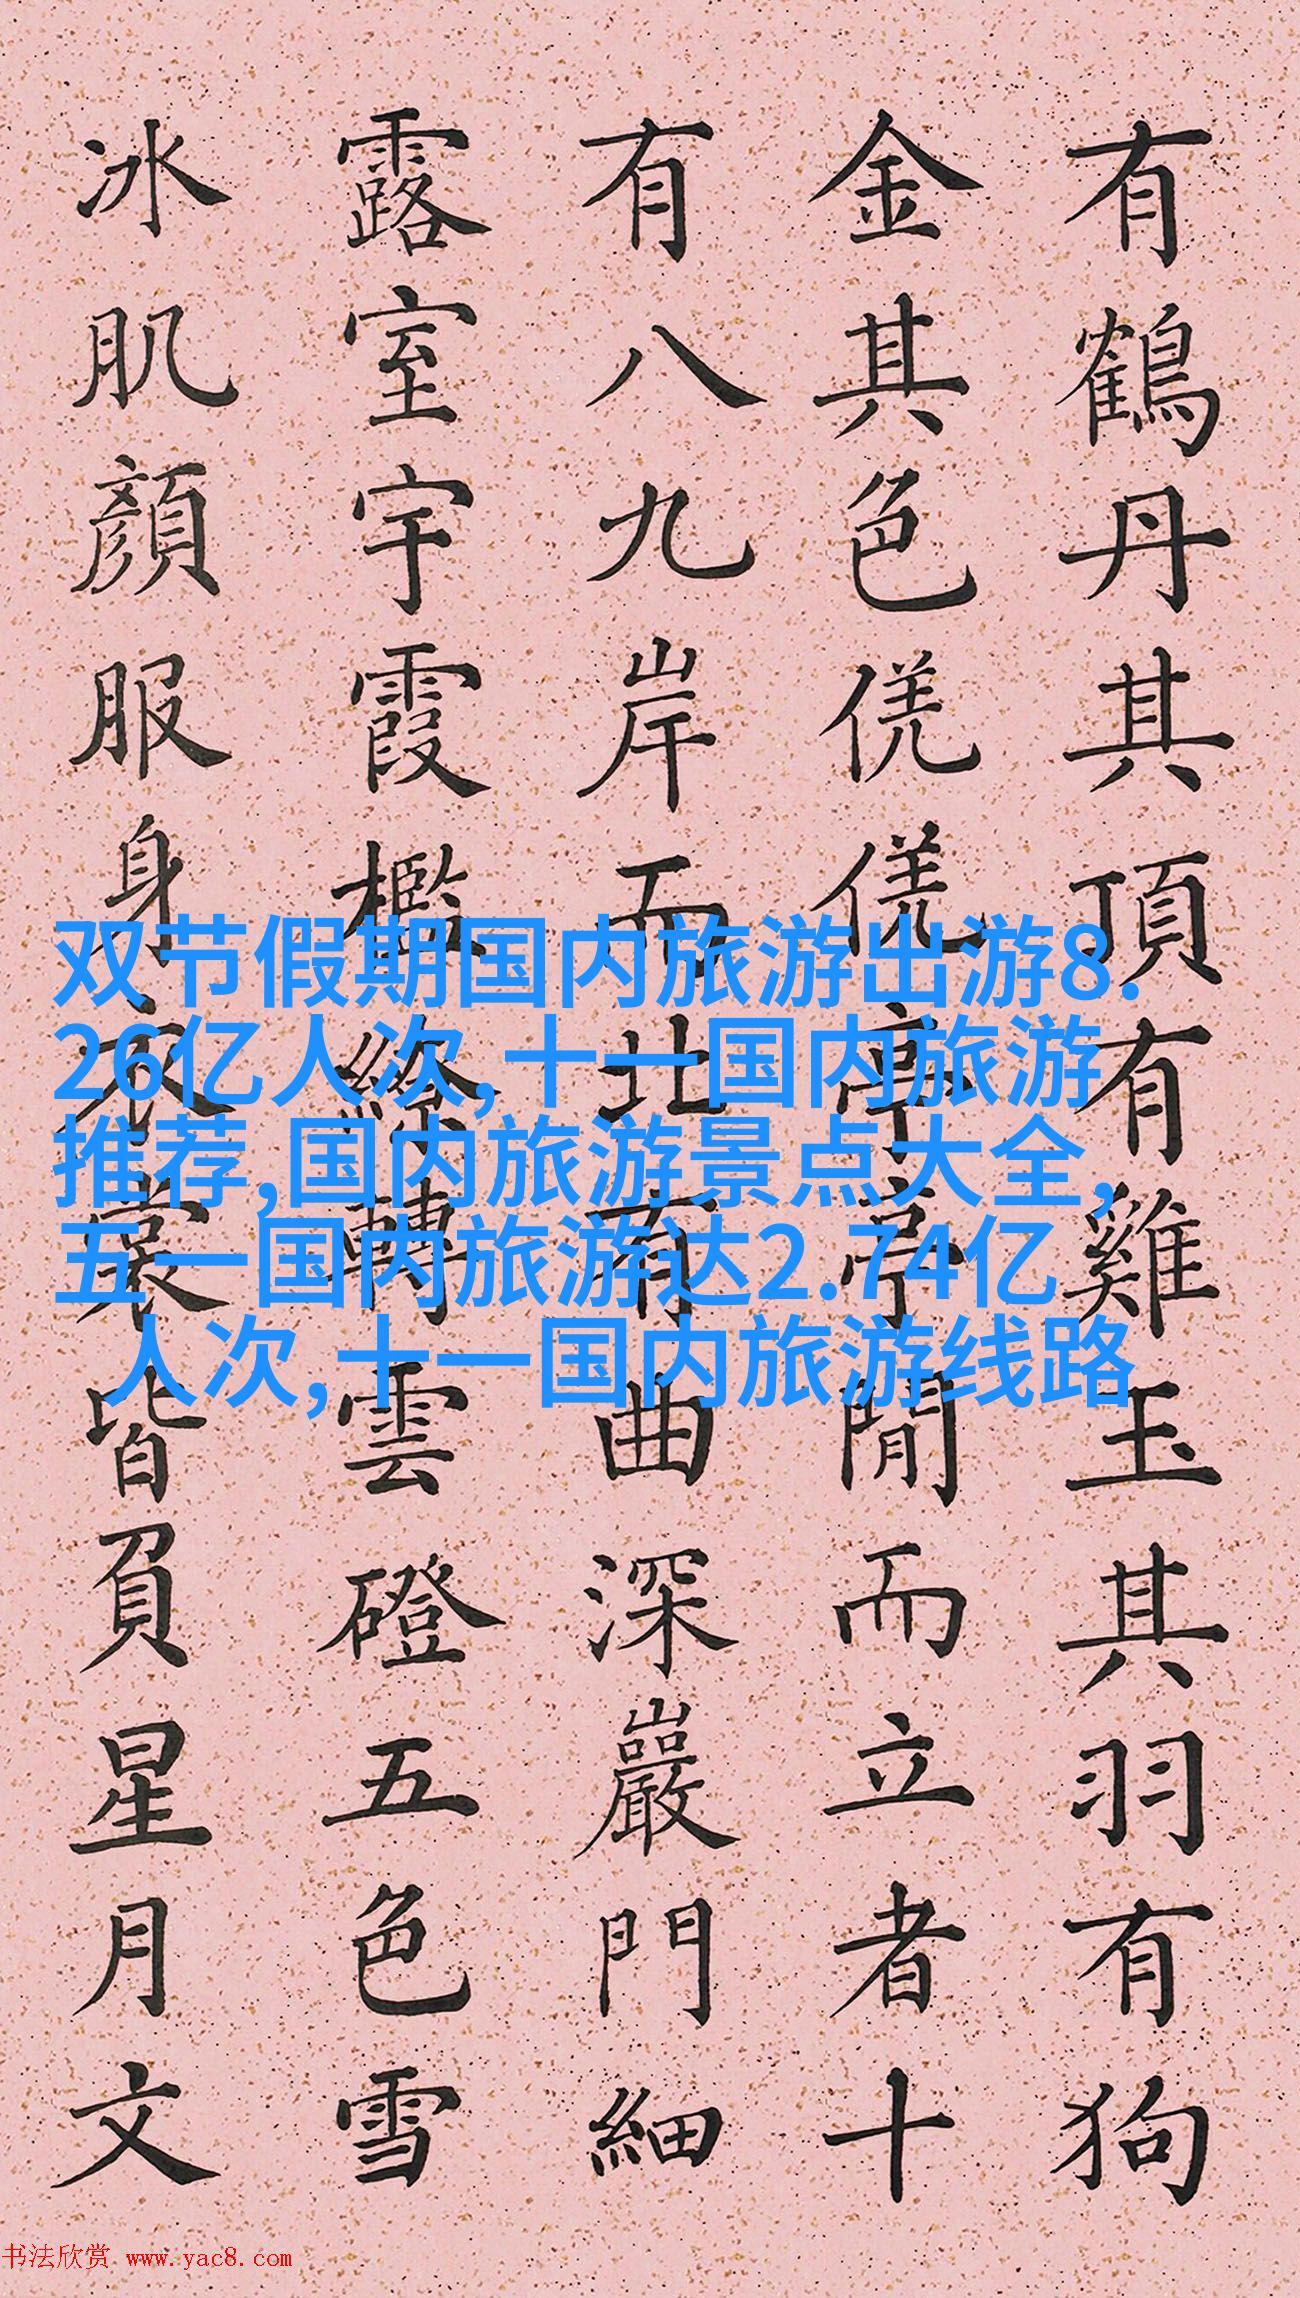 有鶴丹其頂有雞玉其羽有狗
金其色亭亭閒而立者十
有八九岸而北有曲深巖門細
露室宇霞檻轉雲磴五色雪
冰肌顏服身衣裳皆負星月文
双节假期国内旅游出游8.
26亿人次,十一国内旅游
推荐,国内旅游景点大全,
五一国内旅游达2.74亿
人次,十一国内旅游线路
书法欣赏 www.yac8.com